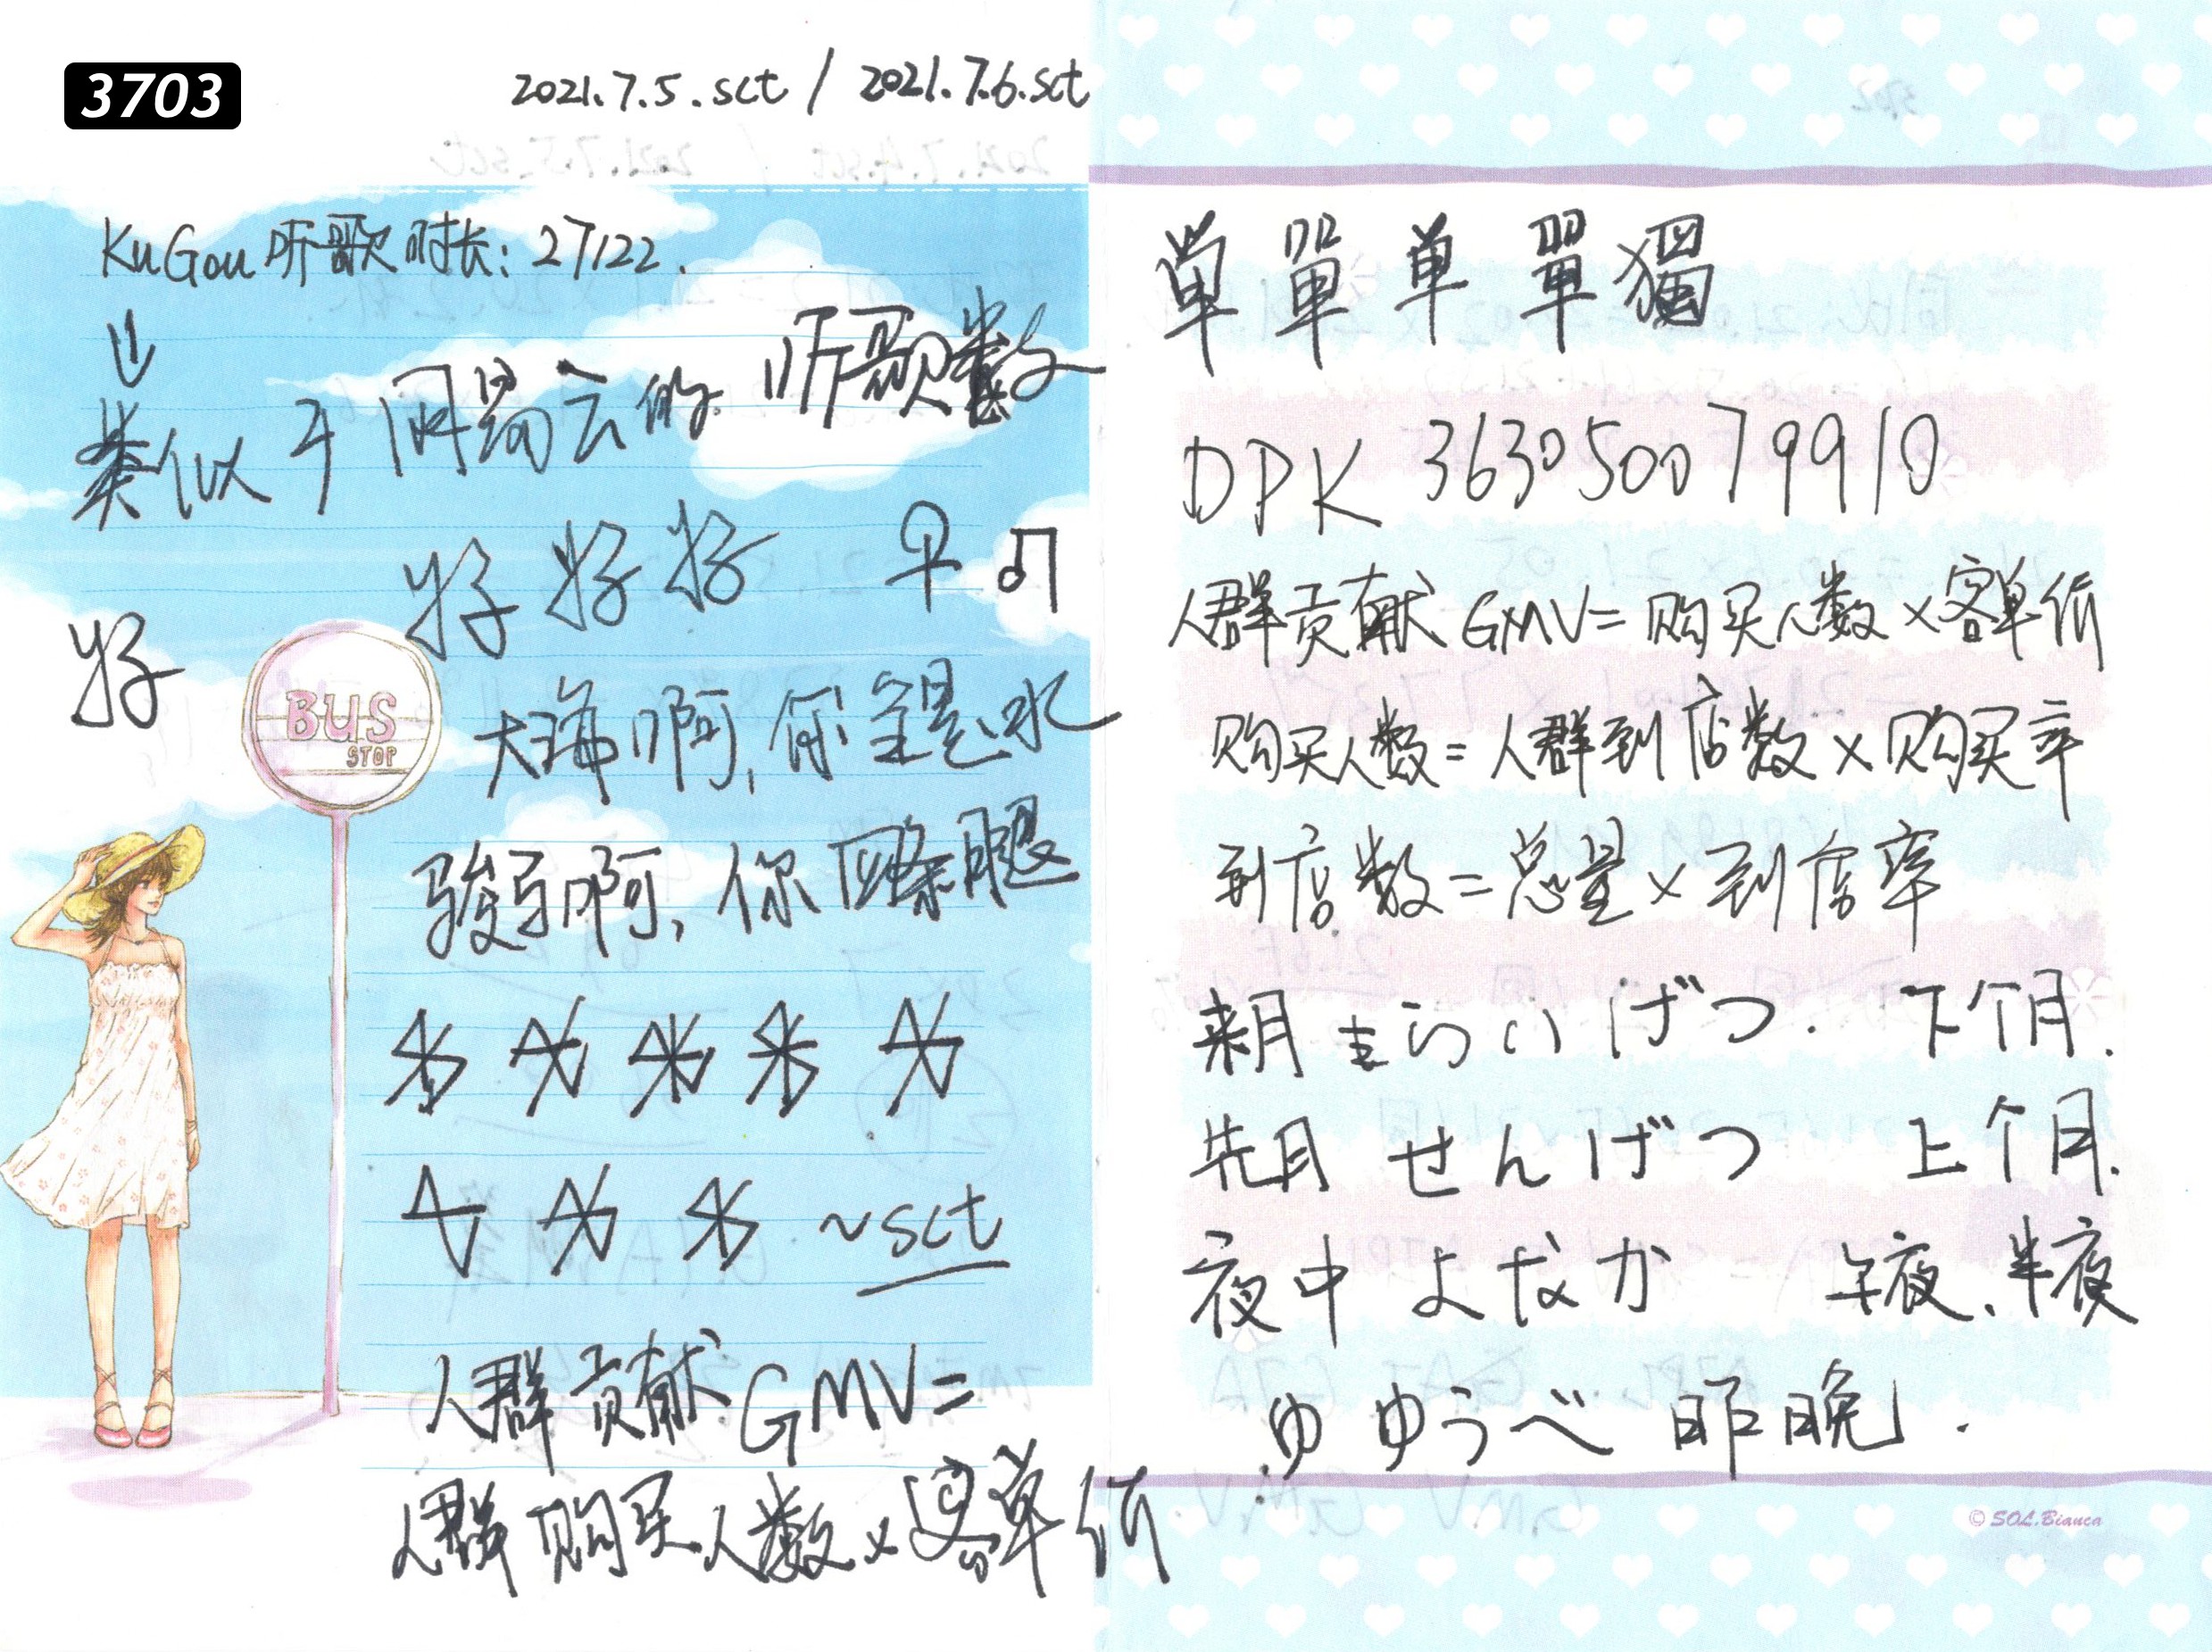 3703
2021.7.5.sct / 2021.7.6.sct
KuGou 听歌时长: 27122.
类似于网易云的听歌数
好好好
好
BUS
STOP
大海啊,你全是水
骏马啊,你四条腿
~sct
人群贡献GMV=
人群购买人数×客单价
単單单單獨
DPK 363050079910
人群贡献GMV=购买人数×客单价
购买人数=人群到店数×购买率
到店数=总量×到店率
来月 らいげつ. 下个月.
先月 せんげつ 上个月.
夜中 よなか 午夜、半夜
ゆ ゆうべ 昨晚.
© SOL.Bianca